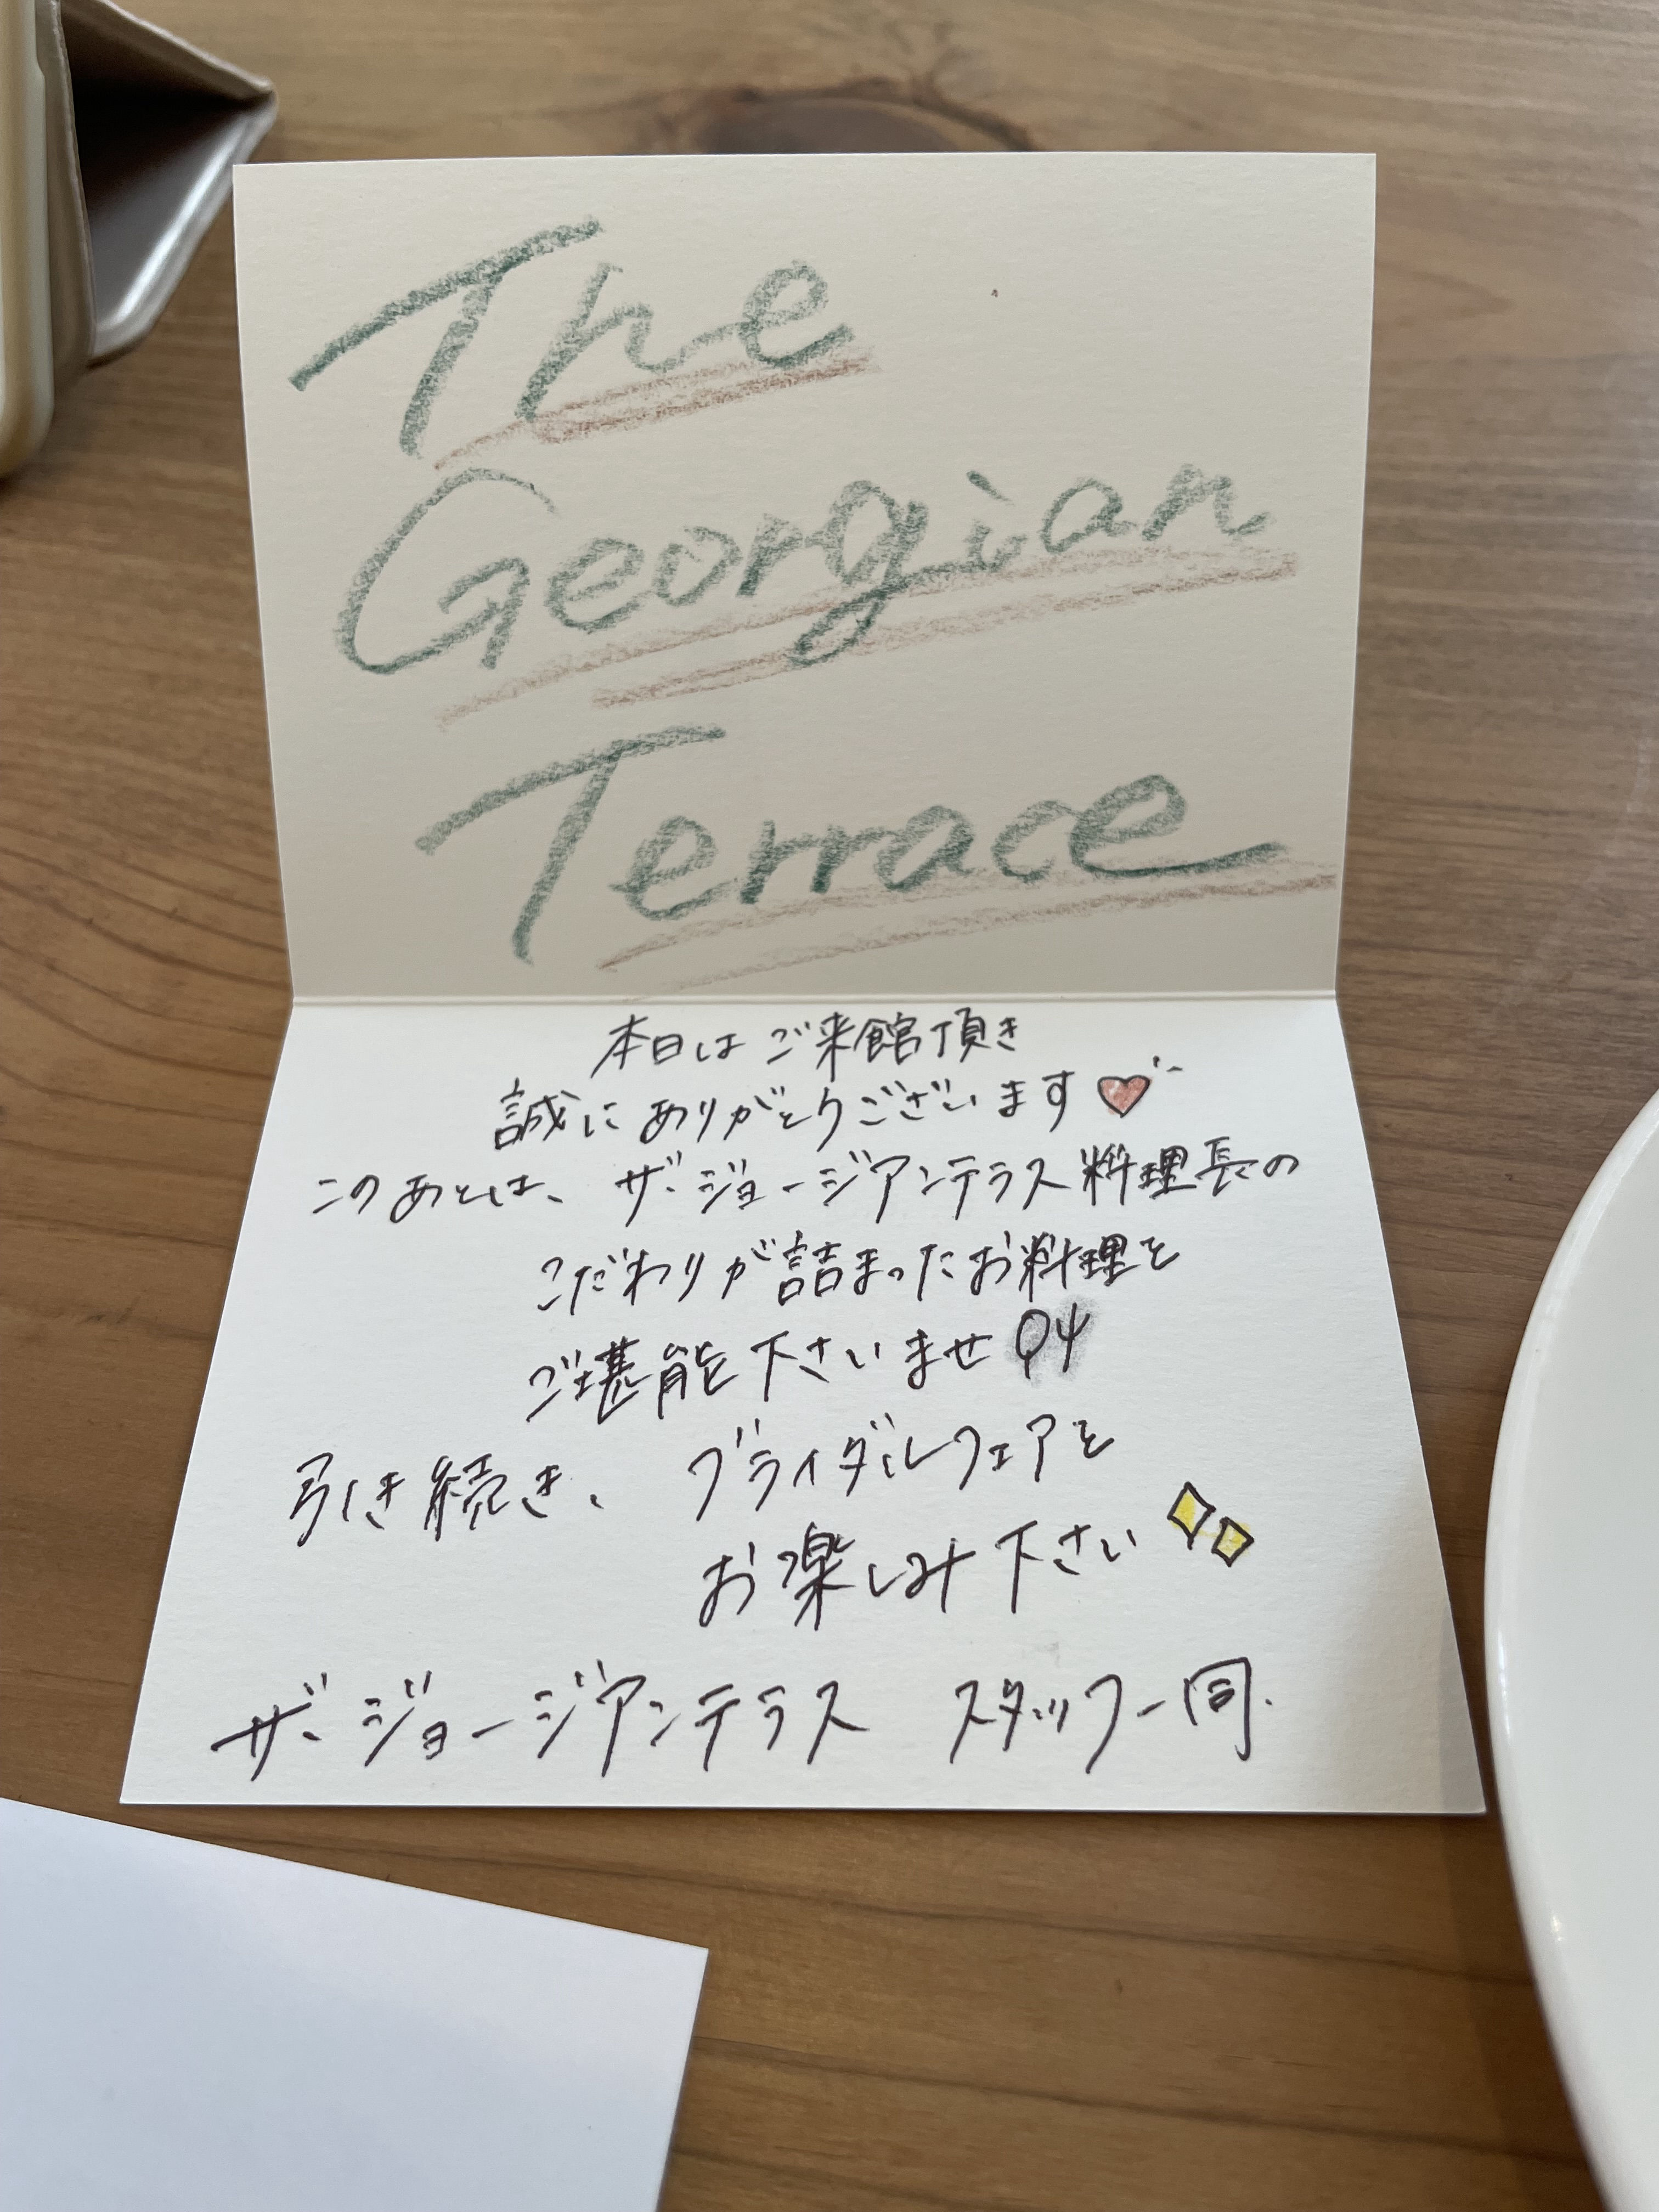 The
Georgian
Terrace
本日はご来館頂き
誠にありがとうございます
このあとは、ザ・ジョージアンテラス料理長の
こだわりが詰まったお料理を
ご堪能下さいませ
引き続き、ブライダルフェアを
お楽しみ下さい
ザ・ジョージアンテラス スタッフ一同.